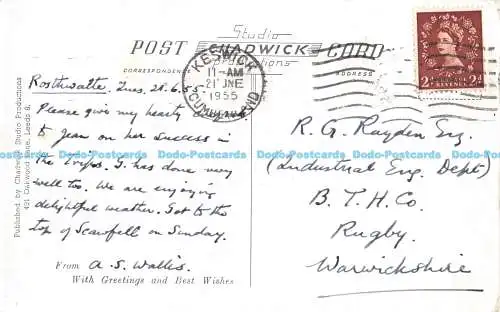 Studio
POST CHADWICK CARD
Productions
CORRESPONDENCE
ADDRESS
KESWICK
11-AM
21 JNE
1955
CUMBERLAND
2d REVENUE 2d
Rosthwaite. Tues. 21.6.55
Please give my hearty
to Jean on her success in
the tripos. G. has done very
well too. We are enjoying
delightful weather. Got to the
top of Scawfell on Sunday.
From A. S. Wallis.
With Greetings and Best Wishes
R. G. Rayden Esq.
(Industrial Eng. Dept)
B. T. H. Co.
Rugby.
Warwickshire
Published by Chadwick Studio Productions
Leeds 8.
Dodo-Postcards Dodo-Postcards Dodo-Postcards Dodo-Postcards Dodo-Postcards